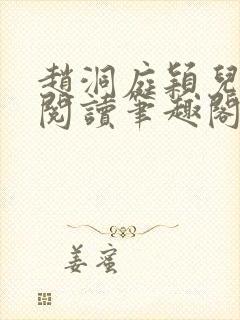 趙洞庭穎兒
閱讀筆趣閣
姜蜜